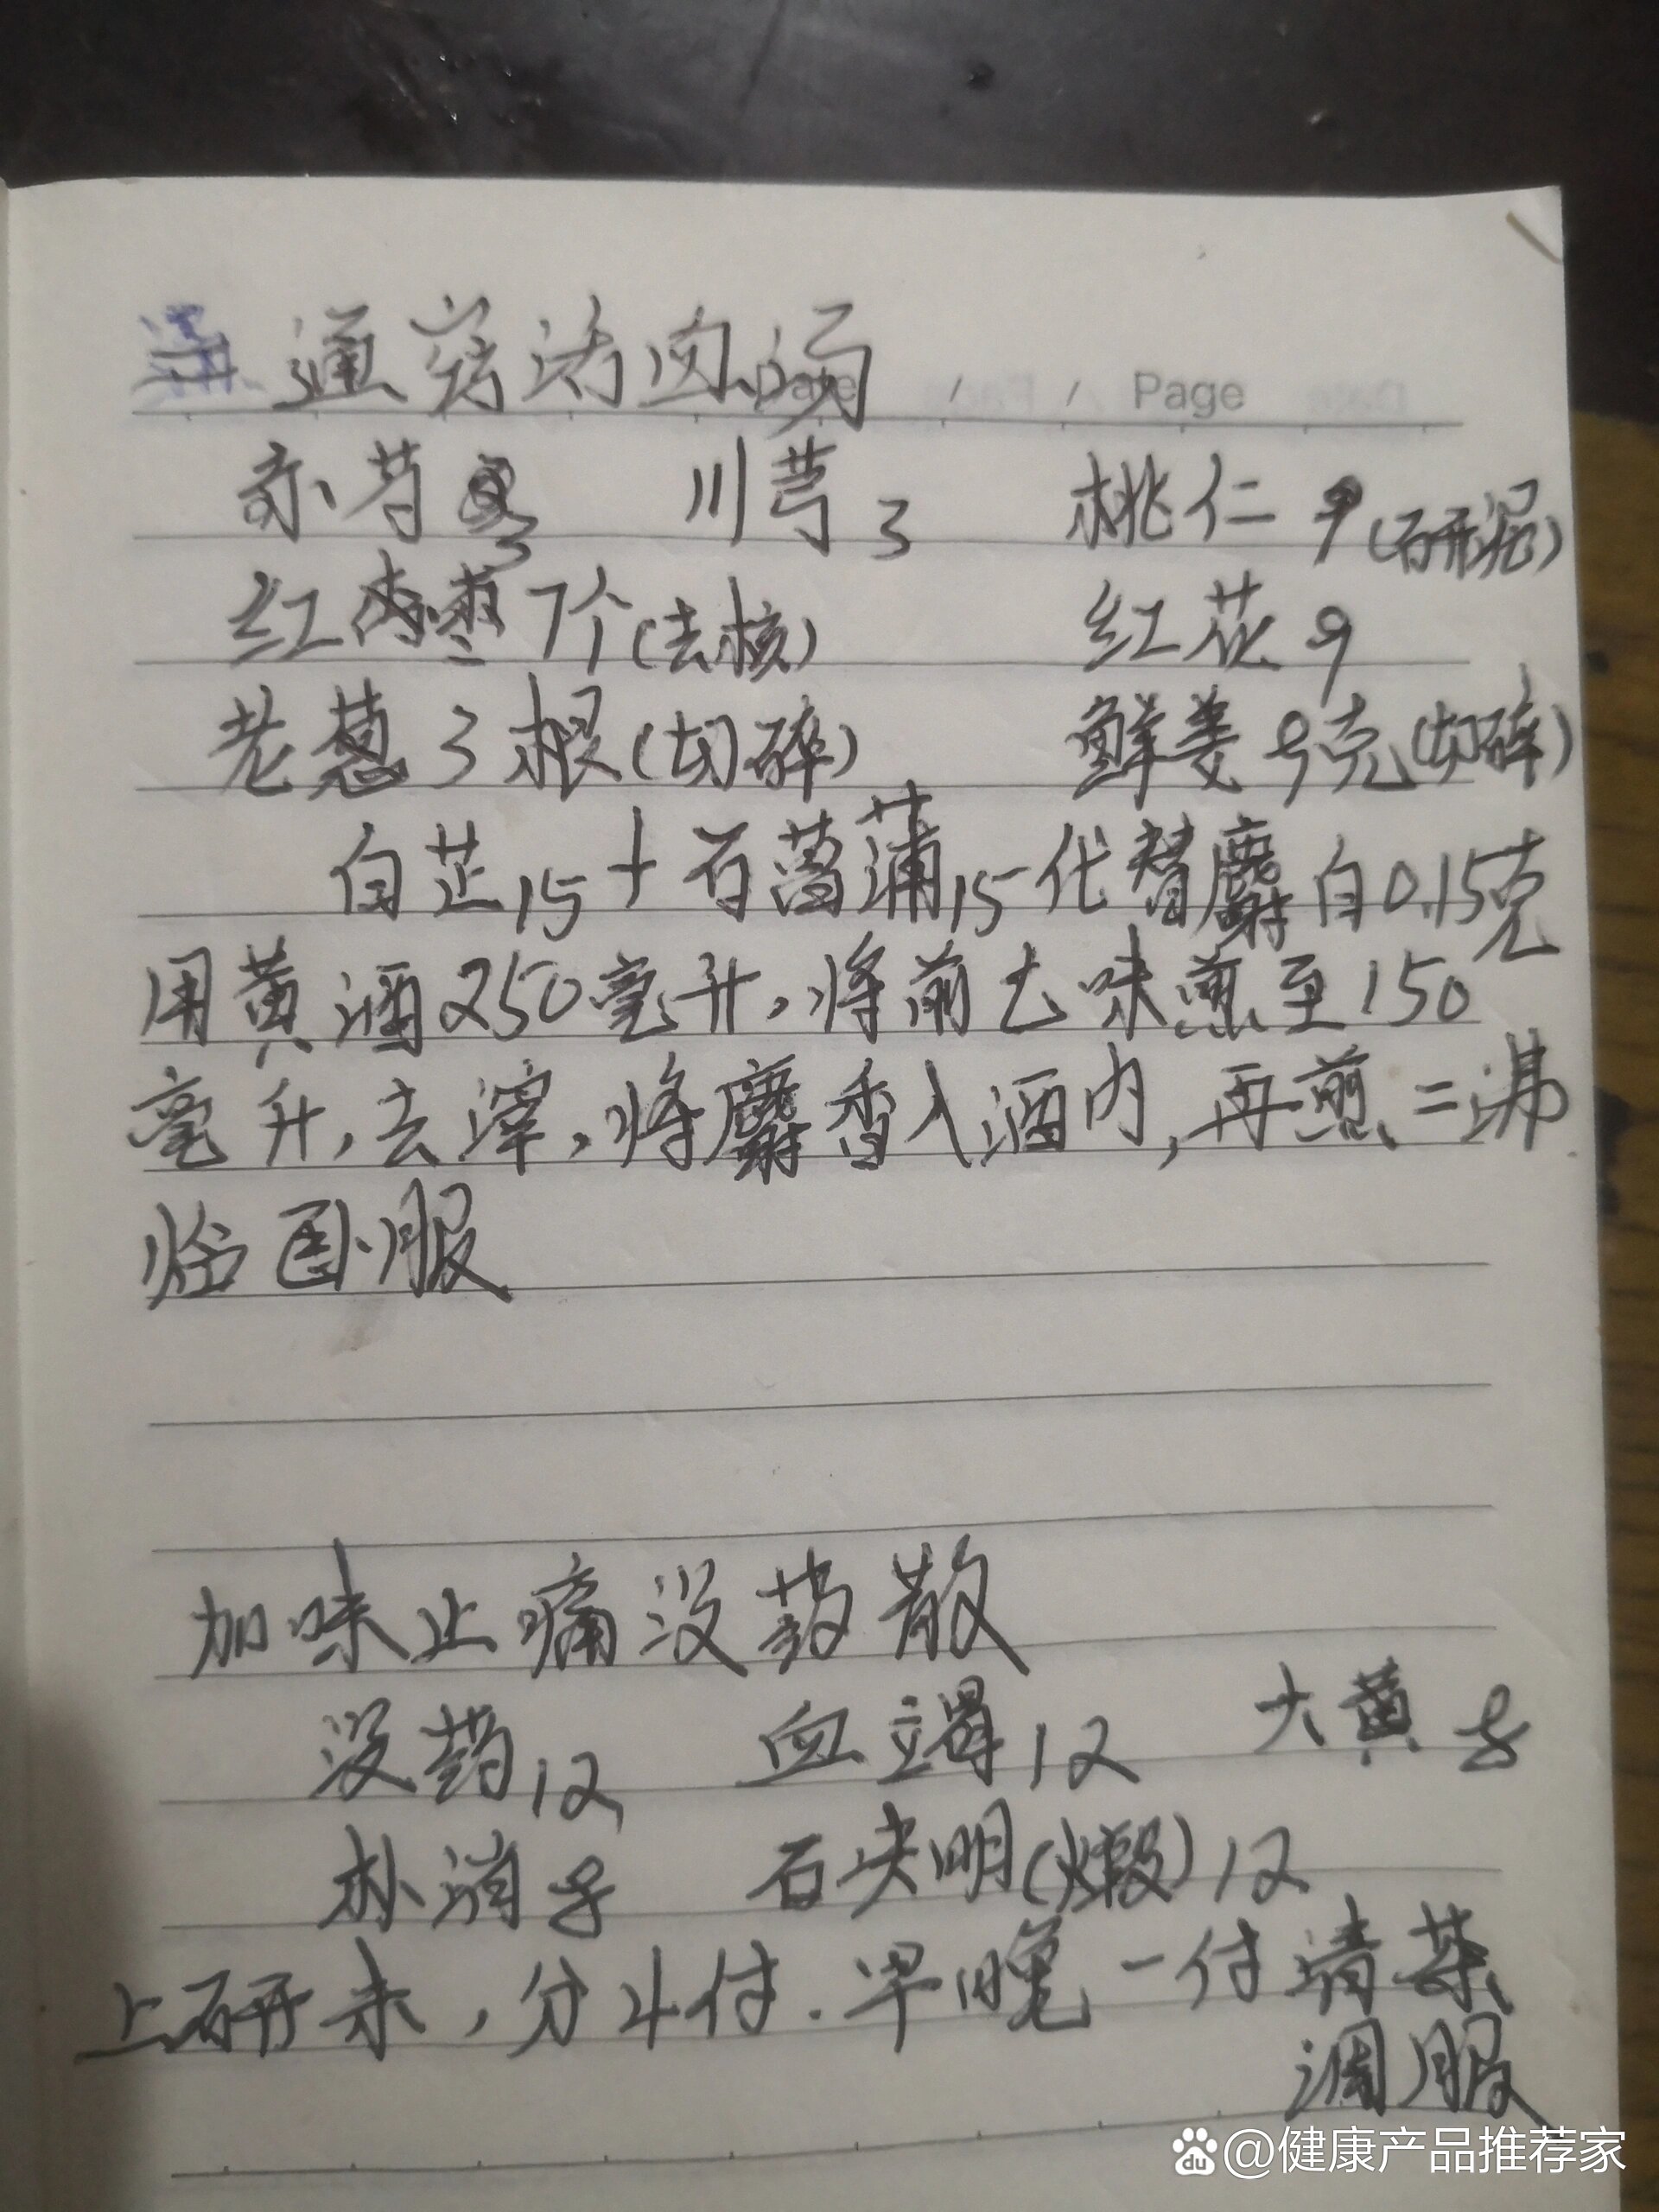 通窍活血汤
Date / / Page
赤芍 3 川芎 3 桃仁 9 (研泥)
红枣 7个 (去核) 红花 9
老葱 3 根 (切碎) 鲜姜 9克 (切碎)
白芷 15 + 石菖蒲 15 - 代替麝自 0.15克
用黄酒250毫升,将前七味煎至150
毫升,去滓,将麝香入酒内,再煎二沸
临卧服
加味止痛没药散
没药 12 血竭 12 大黄 8
朴消 8 石决明 (煅) 12
上研末,分4付.早晚一付清茶
调服
@健康产品推荐家